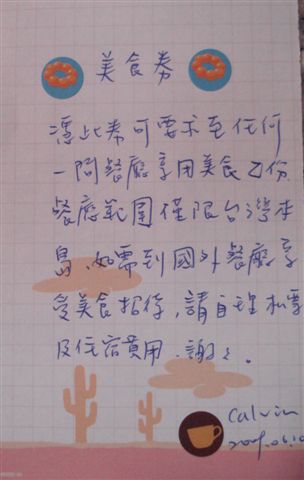 美食券
憑此券可要求至任何
一間餐廳享用美食乙份
餐廳範圍僅限台灣本
島、如需到國外餐廳享
受美食招待,請自理機票
及住宿費用、謝謝。
Calvin